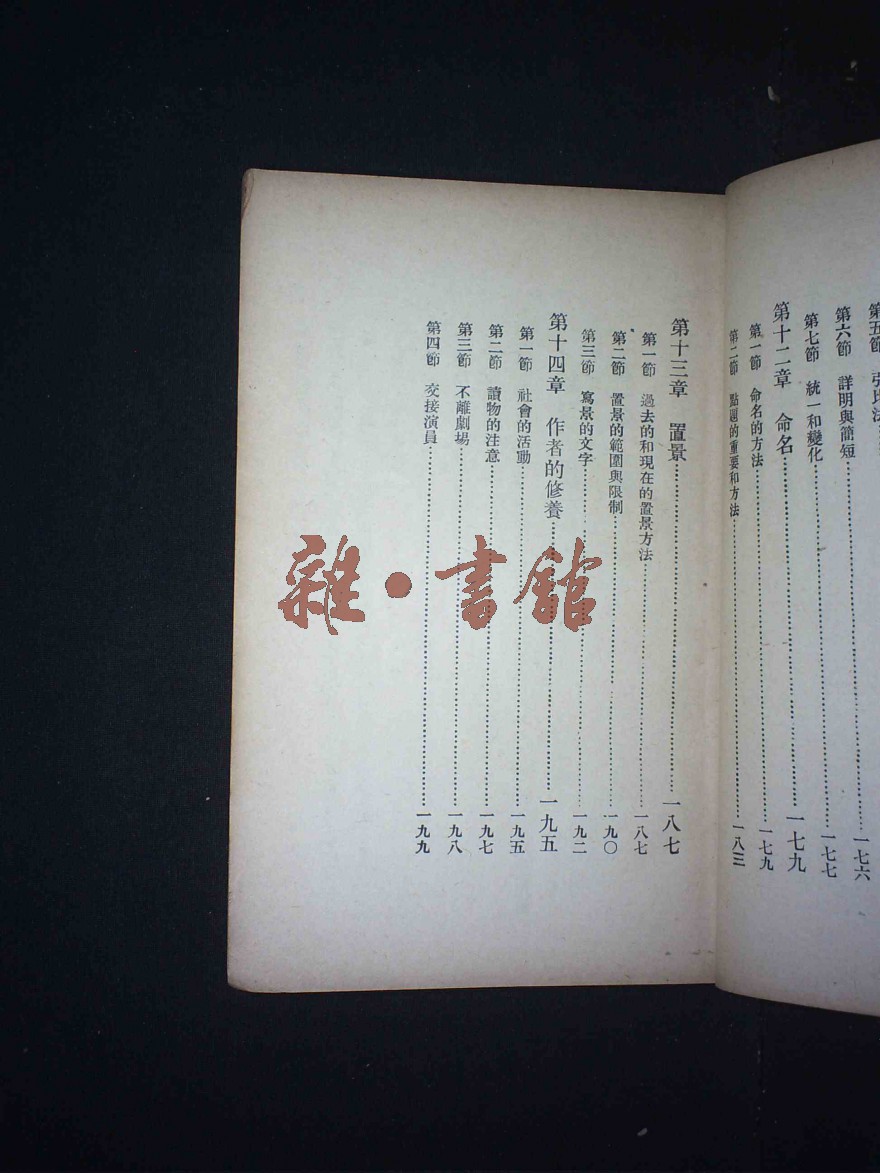 第五節
第六節 詳明與簡短 一七六
第七節 統一和變化 一七七
第十二章 命名 一七九
第一節 命名的方法 一七九
第二節 點題的重要和方法 一八三
第十三章 置景 一八七
第一節 過去的和現在的置景方法 一八七
第二節 置景的範圍與限制 一九〇
第三節 寫景的文字 一九二
第十四章 作者的修養 一九五
第一節 社會的活動 一九五
第二節 讀物的注意 一九七
第三節 不離劇場 一九八
第四節 交接演員 一九九
雜·書館